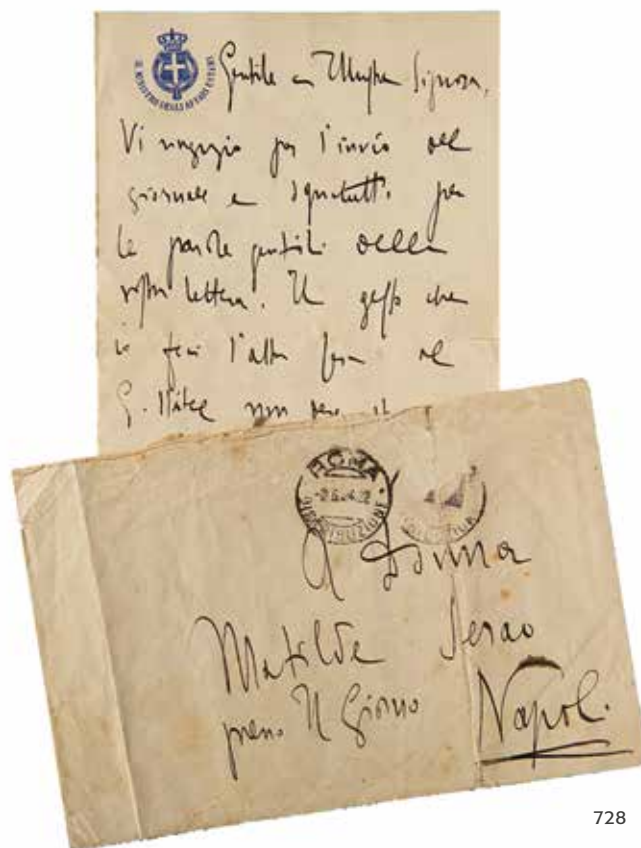 IL MINISTRO DEGLI AFFARI ESTERI
Gentile e Illustre Signora,
Vi ringrazio per l'invio del
giornale e soprattutto per
le parole gentili della
vostra lettera. Il gesto che
io feci l'altra sera al
non
ROMA
DISTRIBUZIONE
A Donna
Matilde Serao
presso Il Giorno
Napoli
728